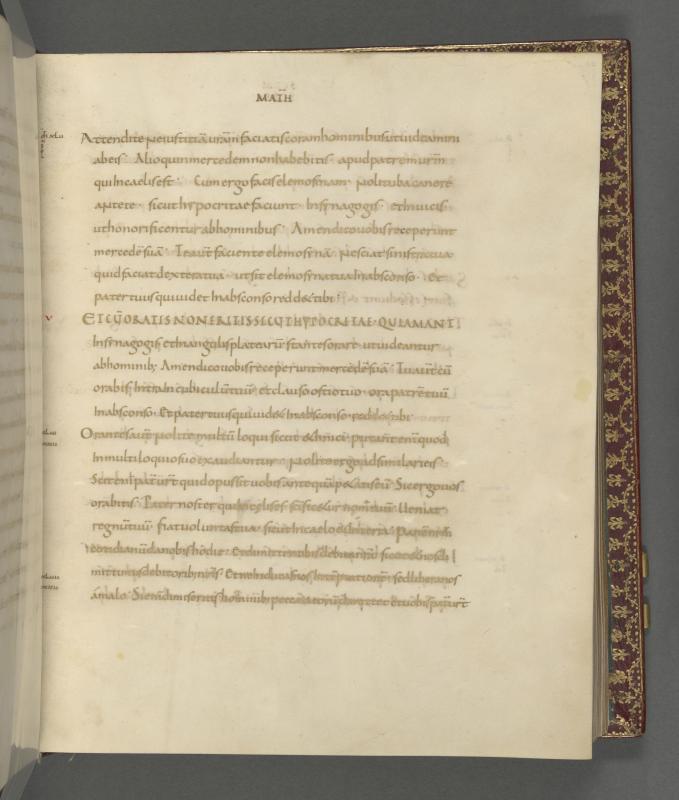 MAT̄H
Attendite ne iustitiā ur̄am faciatis coram hominibus ut uideamini
ab eis · Alioquin mercedem non habebitis apud patrem ur̄m
qui in caelis est · Cum ergo facis elemosinam · noli tuba canere
ante te · sicut hypocritae faciunt in synagogis et in uicis ·
ut honorificentur ab hominibus · Amen dico uobis receperunt
mercedē suā · Te aut̄ faciente elemosynā nesciat sinistra tua
quid faciat dextera tua · ut sit elemosyna tua in absconso · Et
pater tuus qui uidet in absconso reddet tibi ·
V ET CŪ ORATIS NON ERITIS SICUT HYPOCRITAE · QUI AMANT
in synagogis et in angulis plateārū stantes orare · ut uideantur
ab hominib; Amen dico uobis receperunt mercedē suā · Tu aut̄ cū
orabis intra in cubiculū tuū et clauso ostio tuo · ora patrē tuū
in absconso · Et pater tuus qui uidet in absconso reddet tibi ·
Orantes aut̄ nolite multū loqui sicut ethnici putant enī quod
in multiloquio suo exaudiantur · Nolite ergo adsimilari eis ·
Scit enī pat̄ ur̄t quid opus sit uobis antequā petatis eū · Sic ergo uos
orabitis · Pater noster qui in caelis es sc̄ificetur nomen tuū · Ueniat
regnū tuū · fiat uoluntas tua · sicut in caelo et in terra · Panē nr̄m
cotidianū da nobis hodie · Et dimitte nobis debita nr̄a sicut et nos di
mittimus debitorib; nr̄is · Et ne inducas nos in temptationē · sed libera nos
a malo · Si enī dimiseritis hominib;